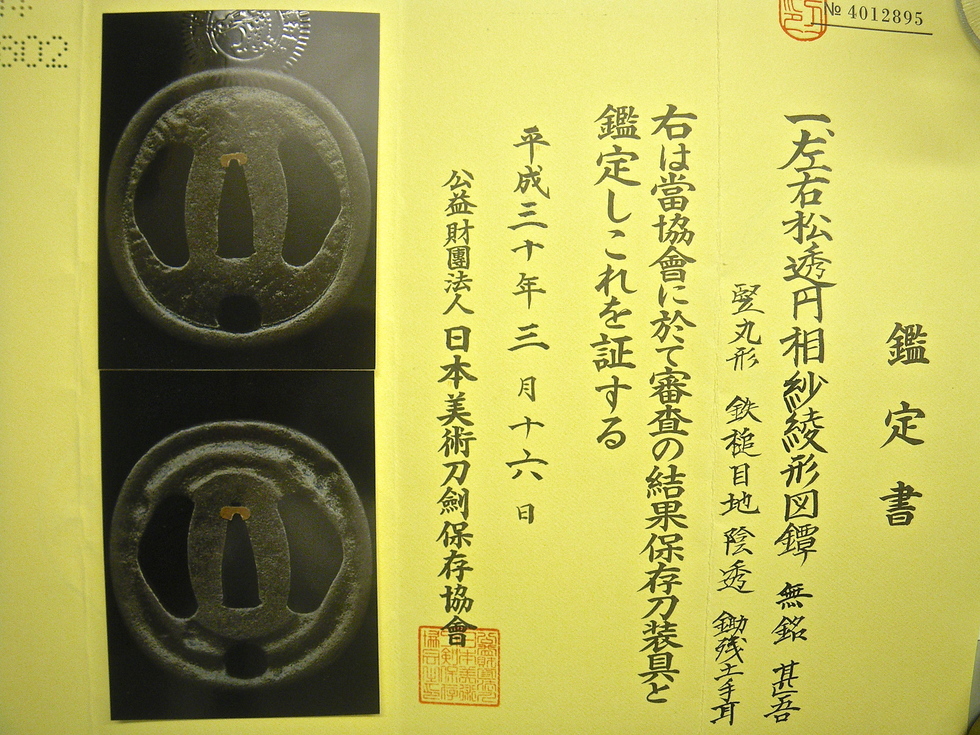 № 4012895
鑑定書
一、左右松透円相紗綾形図鐔 無銘 甚吾
竪丸形 鉄槌目地 陰透 鋤残土手耳
右は當協會に於て審査の結果保存刀装具と
鑑定しこれを証する
平成三十年三月十六日
公益財團法人 日本美術刀劍保存協會
802